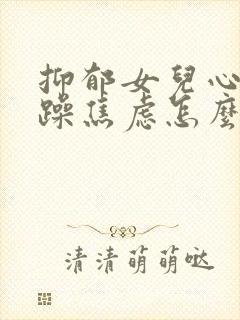 抑郁女兒心
躁焦虑怎麼
清清萌萌哒